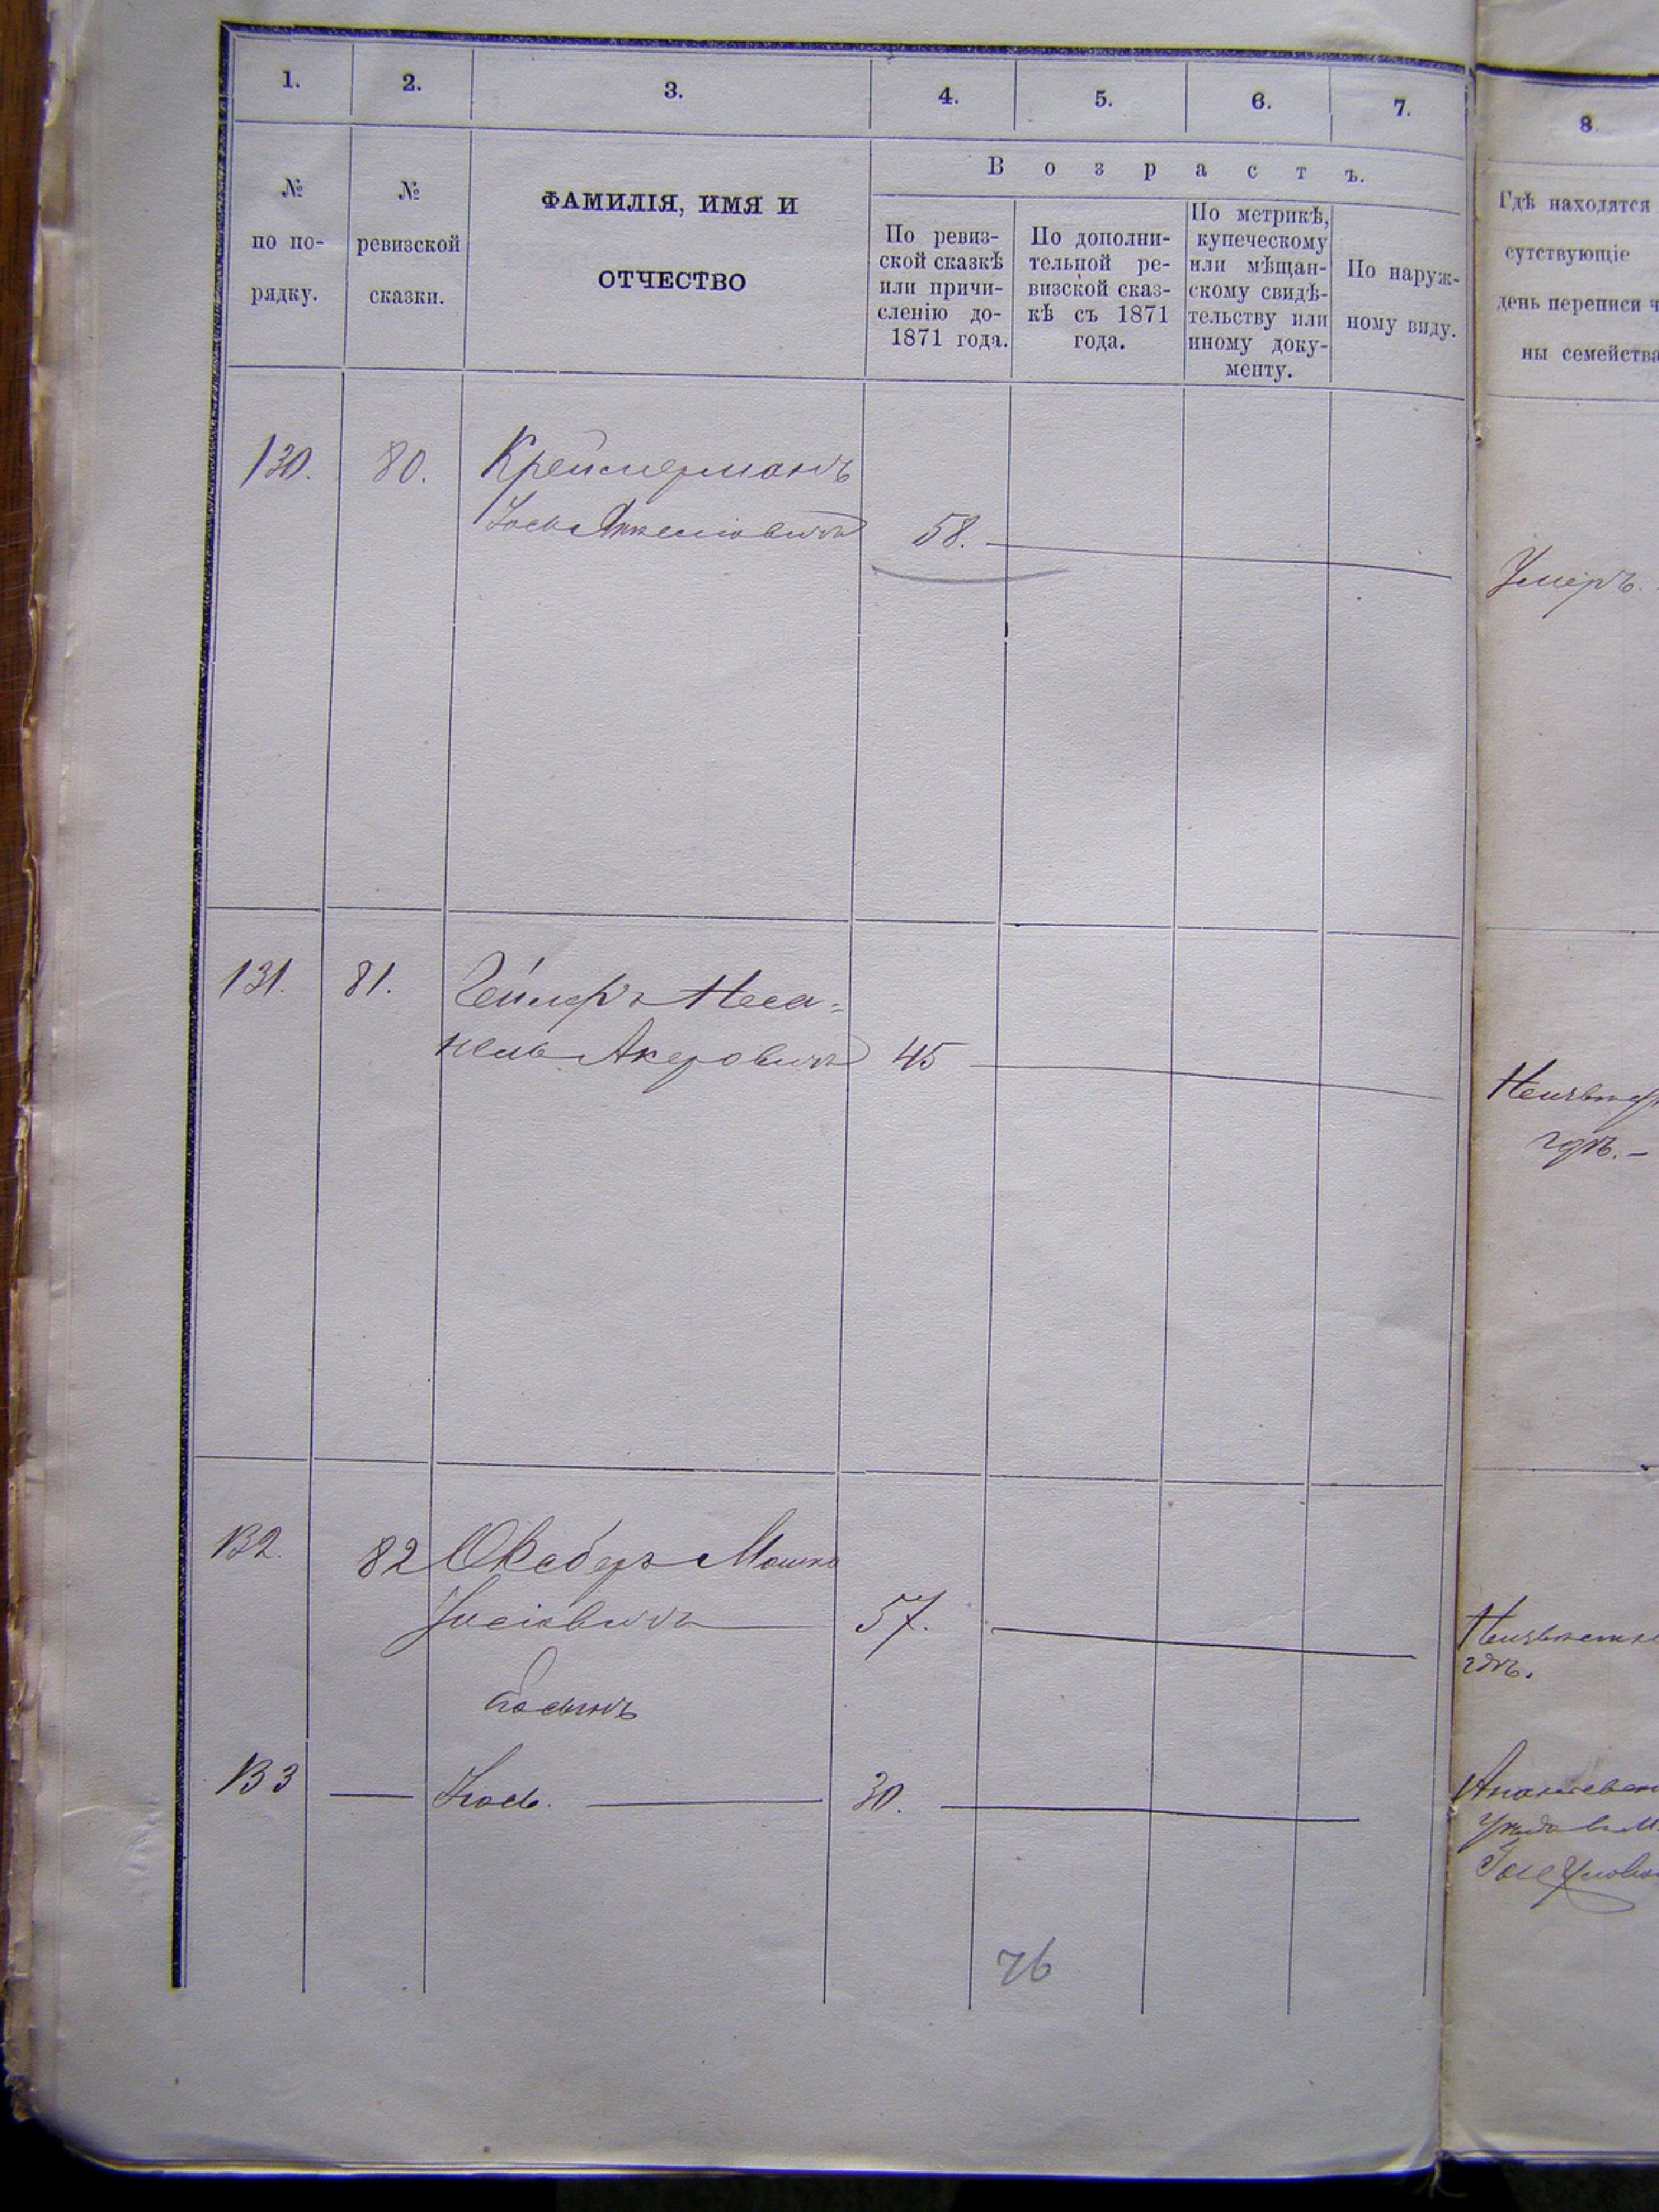 1. 2. 3. 4. 5. 6. 7. 8.
Возрастъ.
№ по по-рядку.
№ ревизской сказки.
ФАМИЛІЯ, ИМЯ И
ОТЧЕСТВО
По ревиз-
ской сказкѣ
или причи-
сленію до-
1871 года.
По дополни-
тельной ре-
визской сказ-
кѣ съ 1871
года.
По метрикѣ,
купеческому
или мѣщан-
скому свидѣ-
тельству или
иному доку-
менту.
По наруж-
ному виду.
Гдѣ находятся
сутствующіе
день переписи ч
ны семейства
130. 80. Креймерманъ
Іось Янкеліовичъ 58.
Умеръ.
131. 81.
Акеровичъ 45
Неизвѣстн
гдѣ. -
132. 82 Мошко
Іосіовичъ 57.
Неизвѣстно
гдѣ.
сынъ
133 Іось. 30.
Ананьевск
уѣзда в м.
76